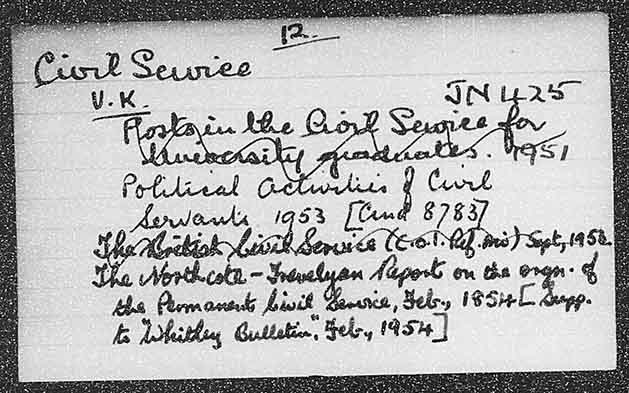 12.
Civil Service
U.K. JN 425
Posts in the Civil Service for
University graduates. 1951
Political Activities of Civil
Servants 1953 [Cmd 8783]
The British Civil Service (C.O.I. Ref. Div) Sept, 1952.
The Northcote-Trevelyan Report on the orgn. of
the Permanent Civil Service, Feb., 1854 [Supp.
to "Whitley Bulletin", Feb., 1954]